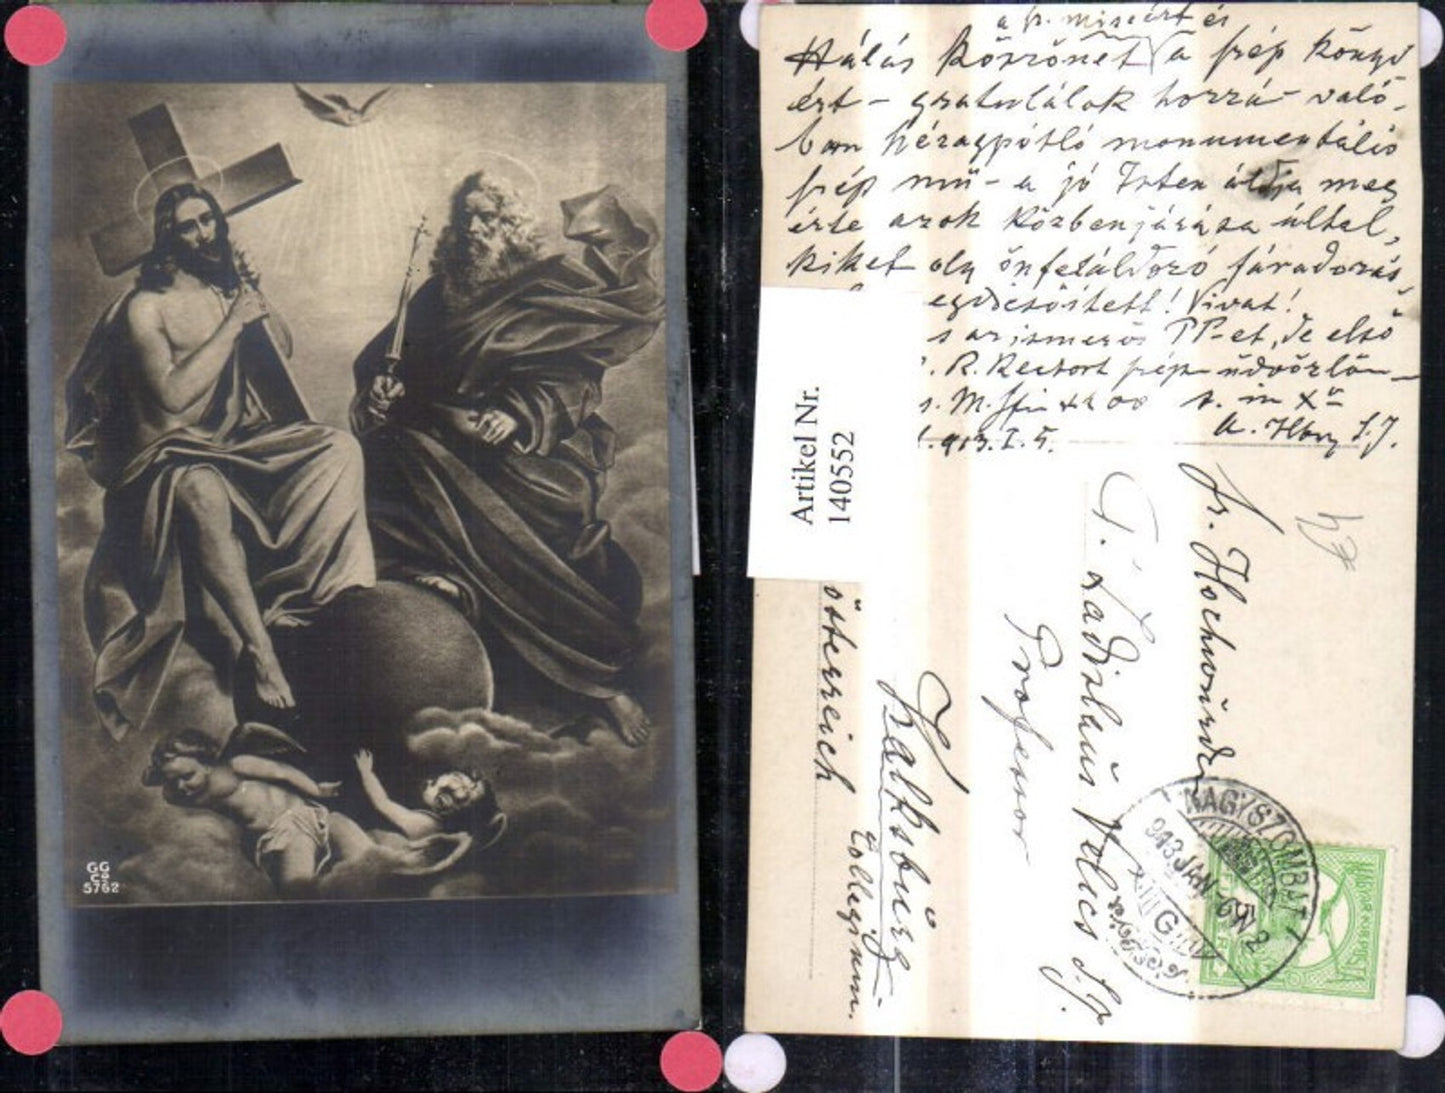 GG
Co
5762
a sz. miséért és
Hálás köszönet a szép könyv
ért - gratulálok hozzá - való-
ban hézagpótló monumentális
szép mű - a jó Isten áldja meg
érte azok közbenjárása által,
kiket oly önfeláldozó fáradozás,
egydicsőitett! Vivat!
s az ismerős PP-et, de első
R. Rectort szép üdvözlön-
s. in Xo
913. I. 5.
S. J.
Artikel Nr.
140552
Sr. Hochwürden
P. Ladislaus Velics S. J.
Professor
Kalksburg
Collegium.
österreich
NAGYSZOMBAT
913 JAN